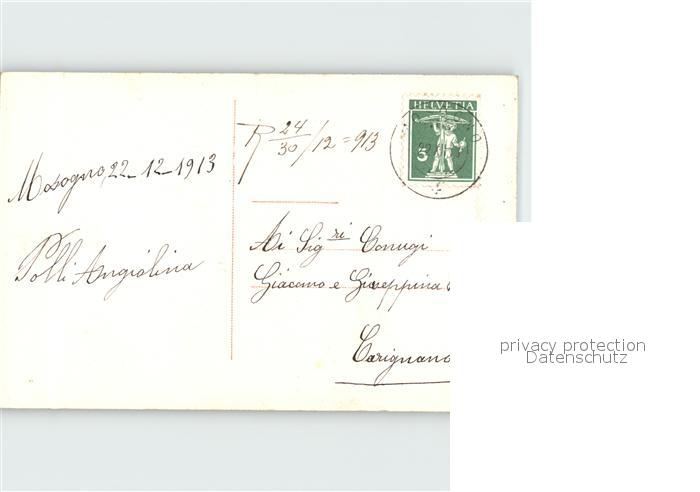 Mosogno, 22-12-1913
Polli Angiolina
R 24/30/12=913
HELVETIA
5
Ai Sig.ri Conugi
Giacomo e Giuseppina
Carignano
privacy protection
Datenschutz